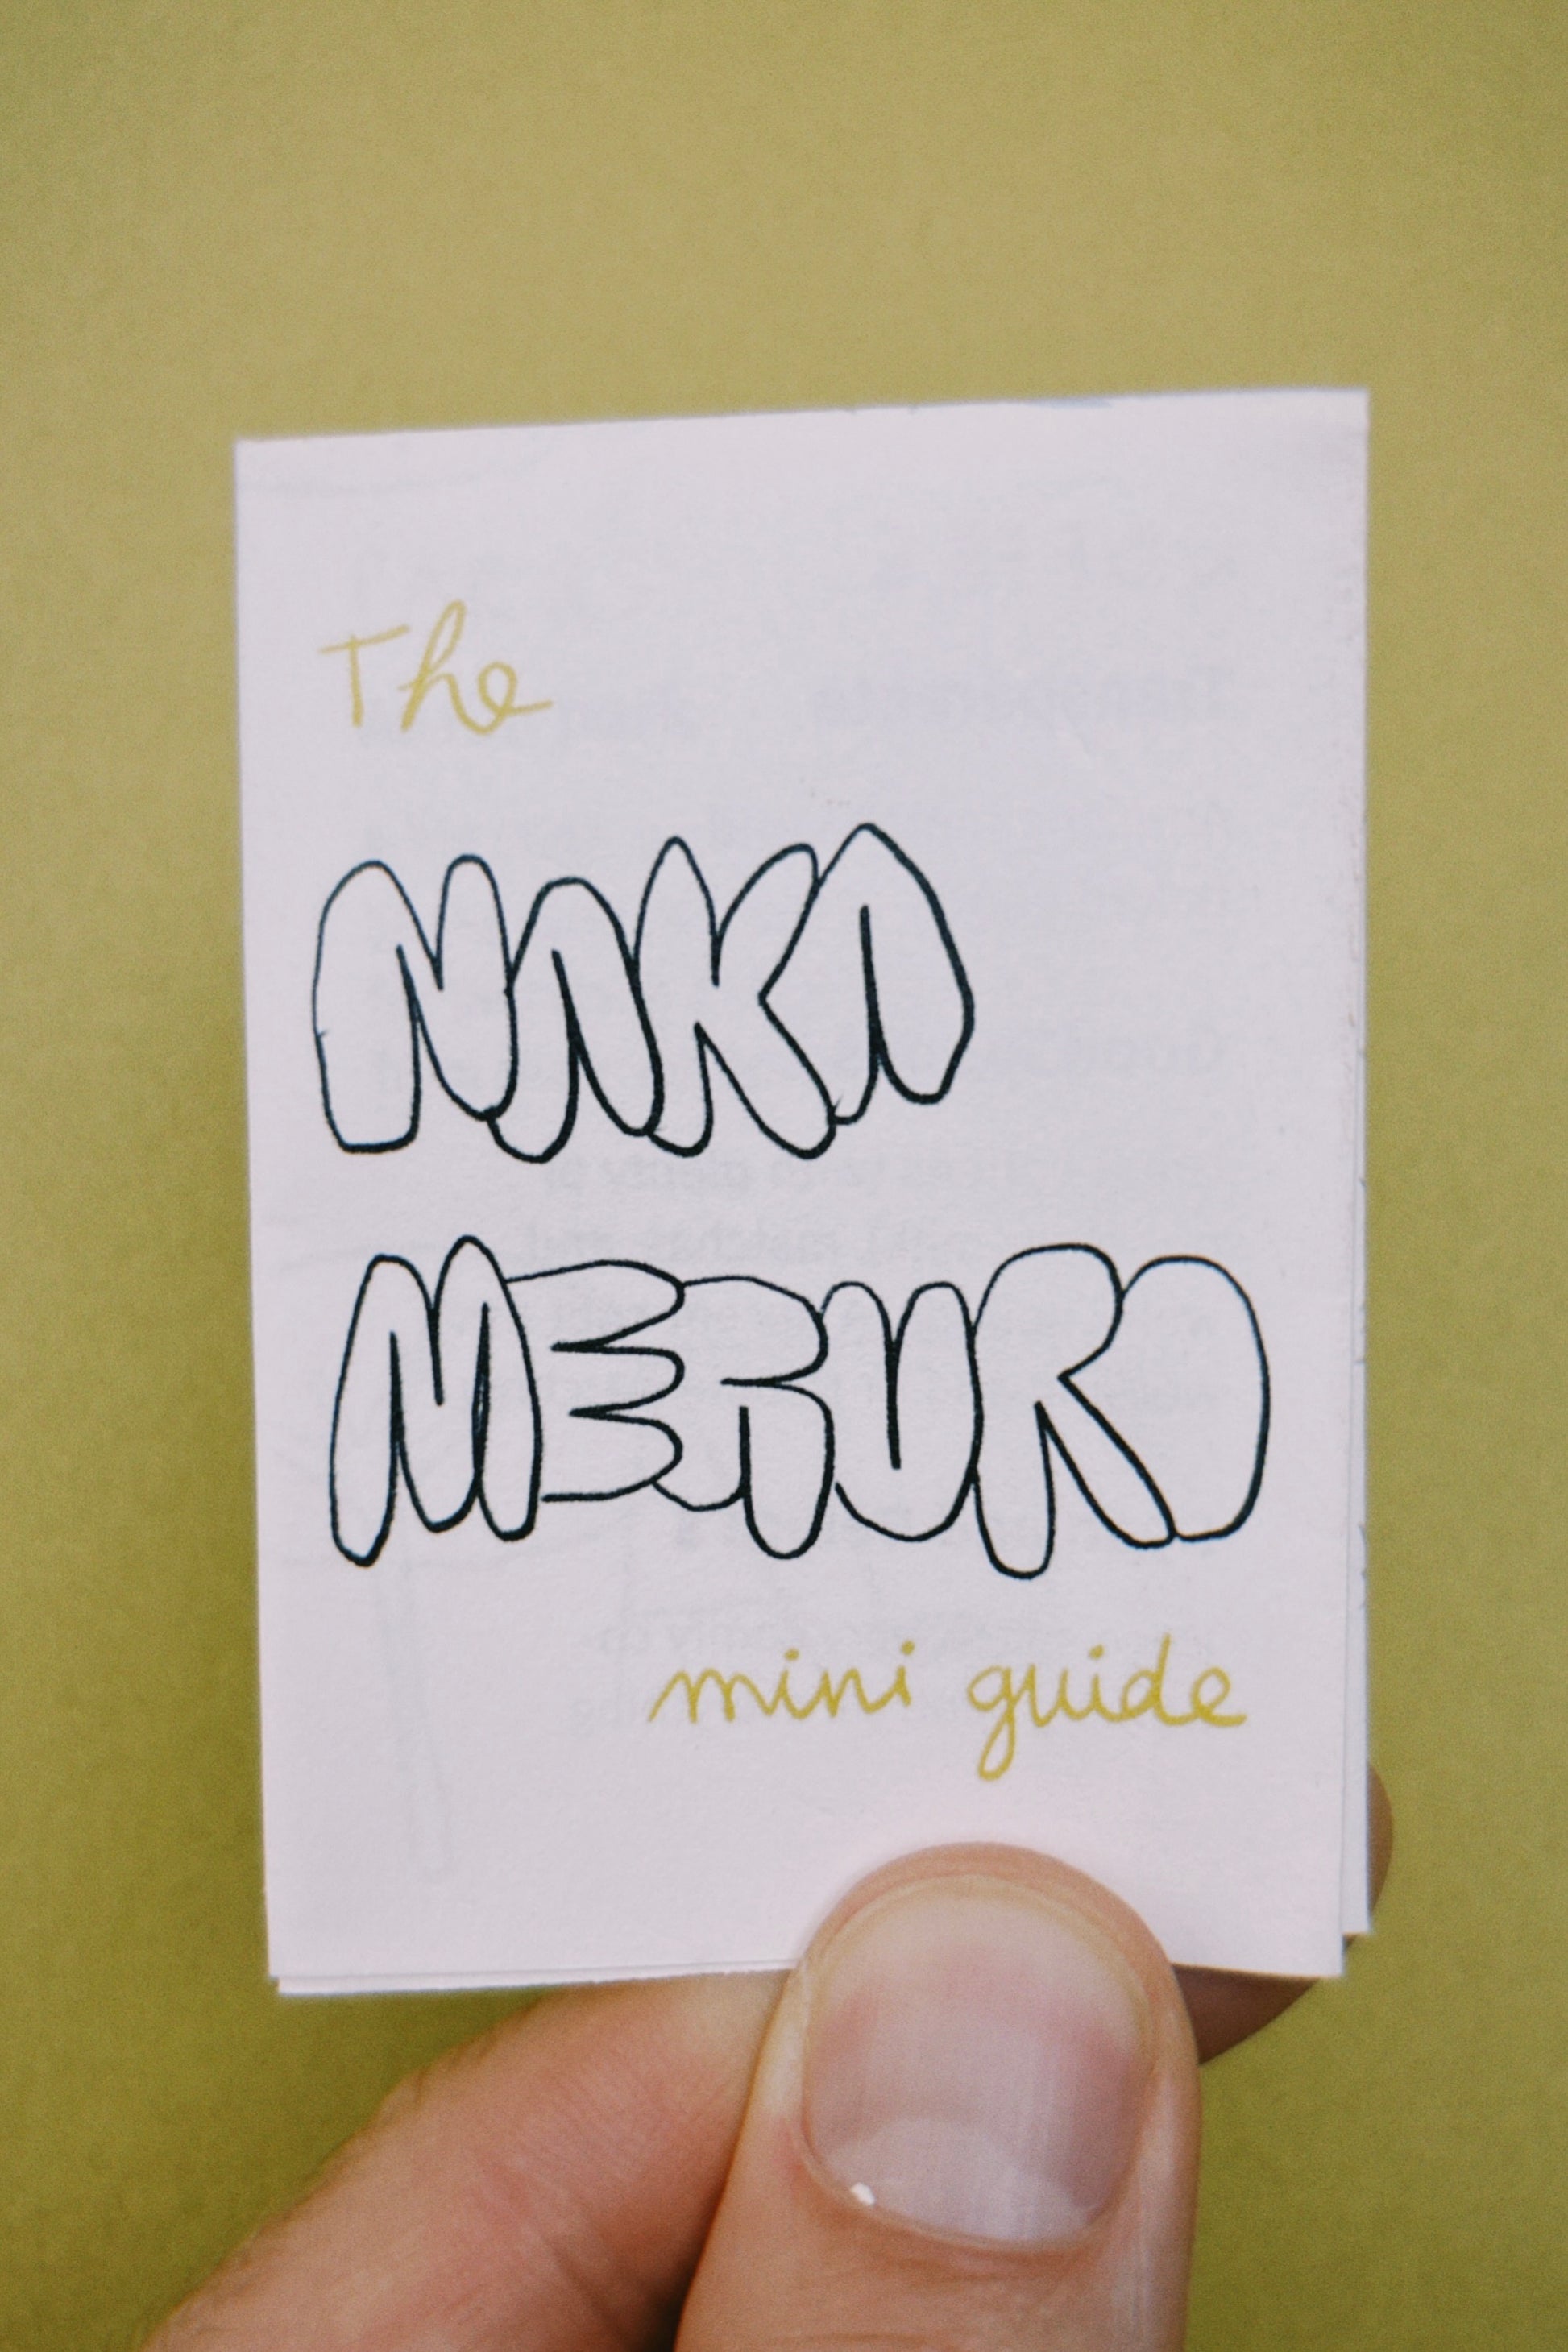 The
NAKA
MERURO
mini guide